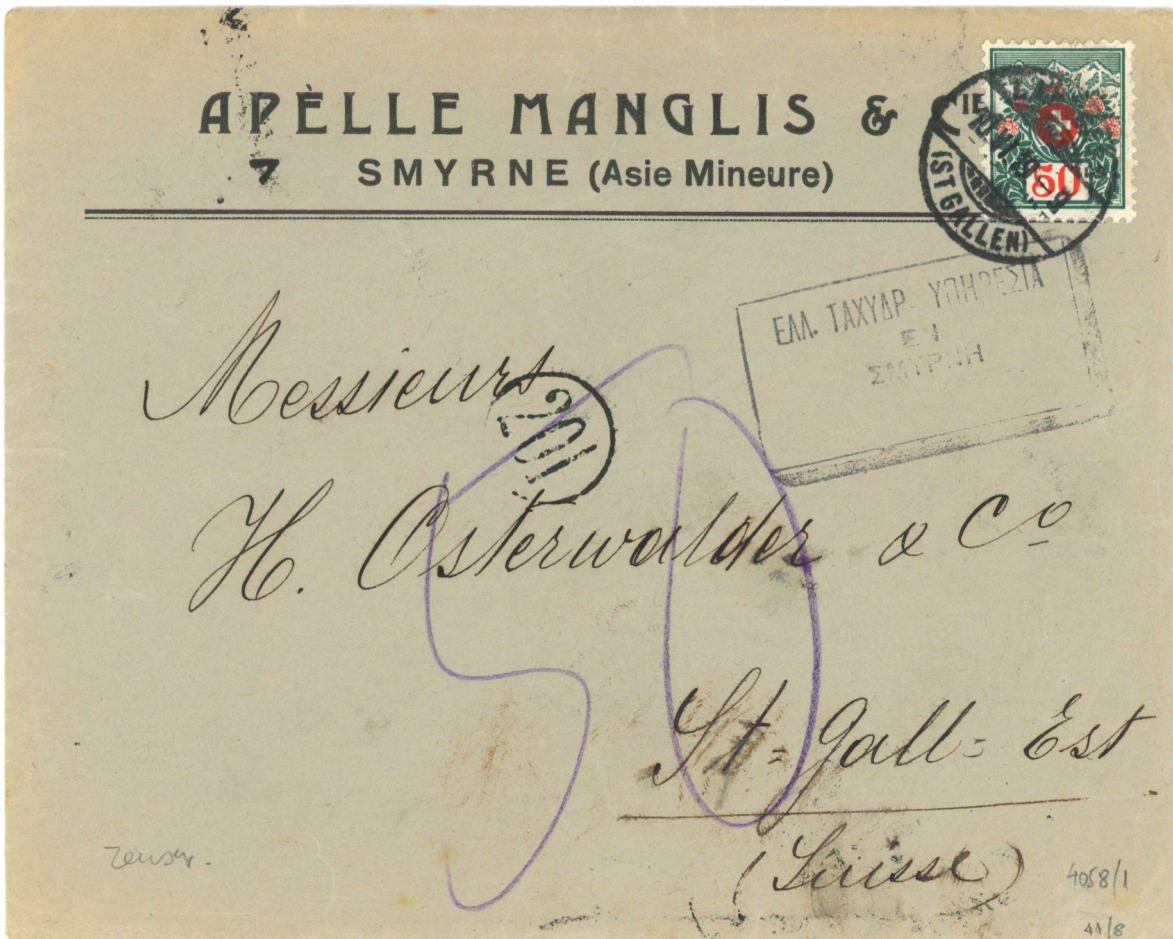 APÈLLE MANGLIS &
SMYRNE (Asie Mineure)
50
10.VI.19.-9
(ST GALLEN)
ΕΛΛ. ΤΑΧΥΔΡ. ΥΠΗΡΕΣΙΑ
ΕΝ
ΣΜΥΡΝΗ
Messieurs
201
H. Osterwalder & Co
50
St=Gall=Est
(Suisse)
4058/1